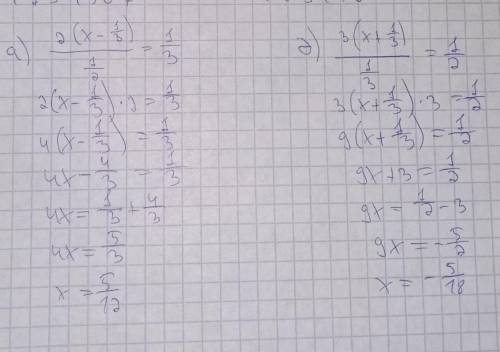 а) 2(x - 1/3) / 1/2 = 1/3
2(x - 1/3) · 2 = 1/3
4(x - 1/3) = 1/3
4x - 4/3 = 1/3
4x = 1/3 + 4/3
4x = 5/3
x = 5/12
д) 3(x + 1/3) / 1/3 = 1/2
3(x + 1/3) · 3 = 1/2
9(x + 1/3) = 1/2
9x + 3 = 1/2
9x = 1/2 - 3
9x = - 5/2
x = - 5/18